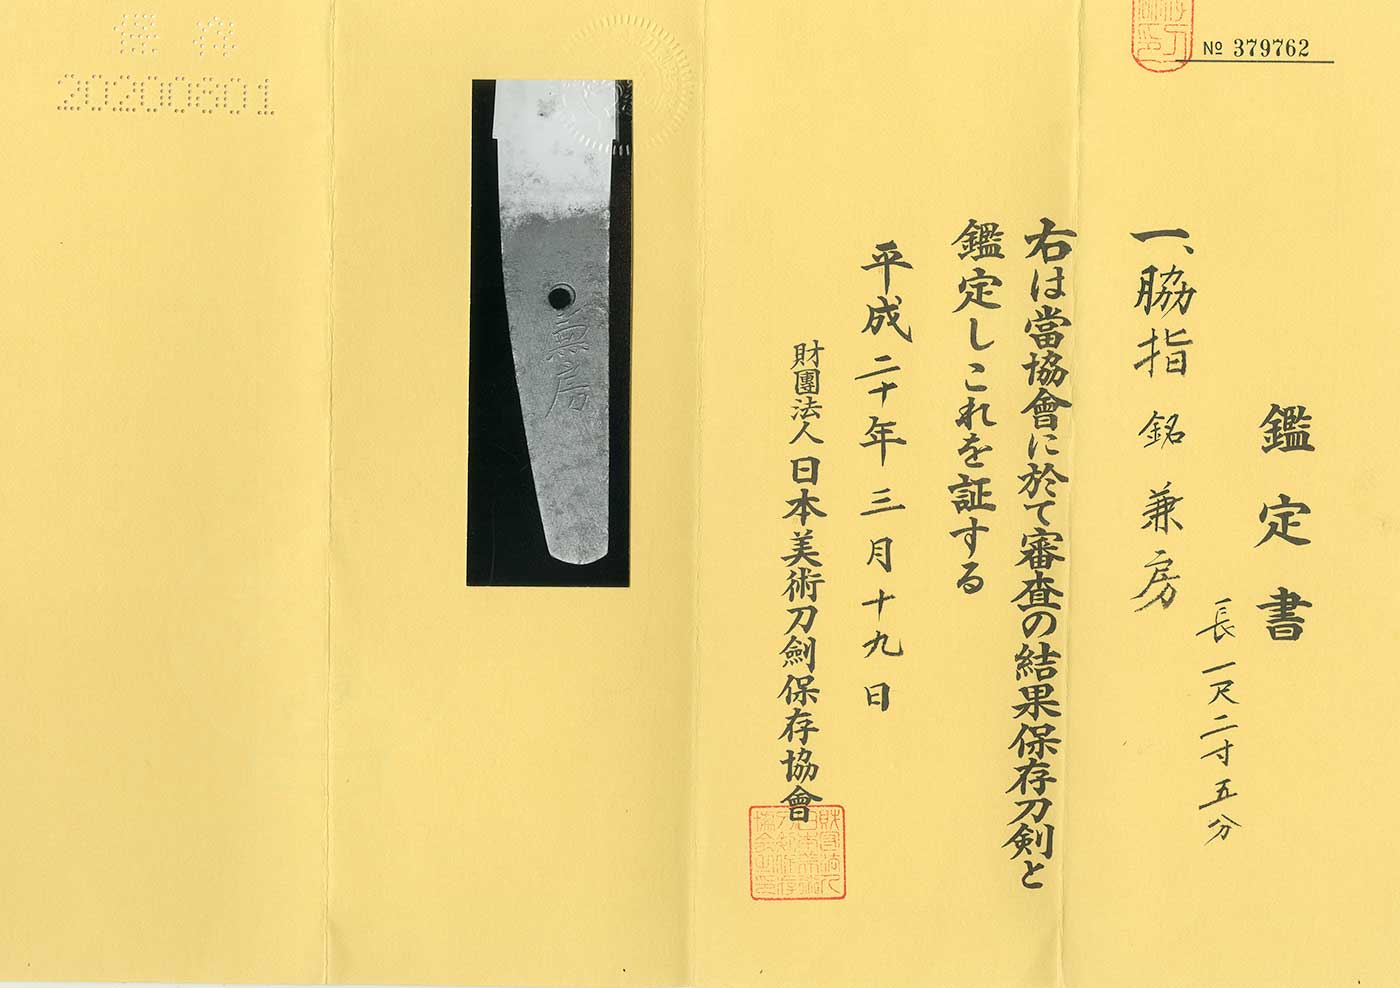 № 379762
鑑定書
一、脇指 銘 兼房
長一尺二寸五分
右は當協會に於て審査の結果保存刀剣と
鑑定しこれを証する
平成二十年三月十九日
財團法人日本美術刀劍保存協會
兼房
保存
20200801